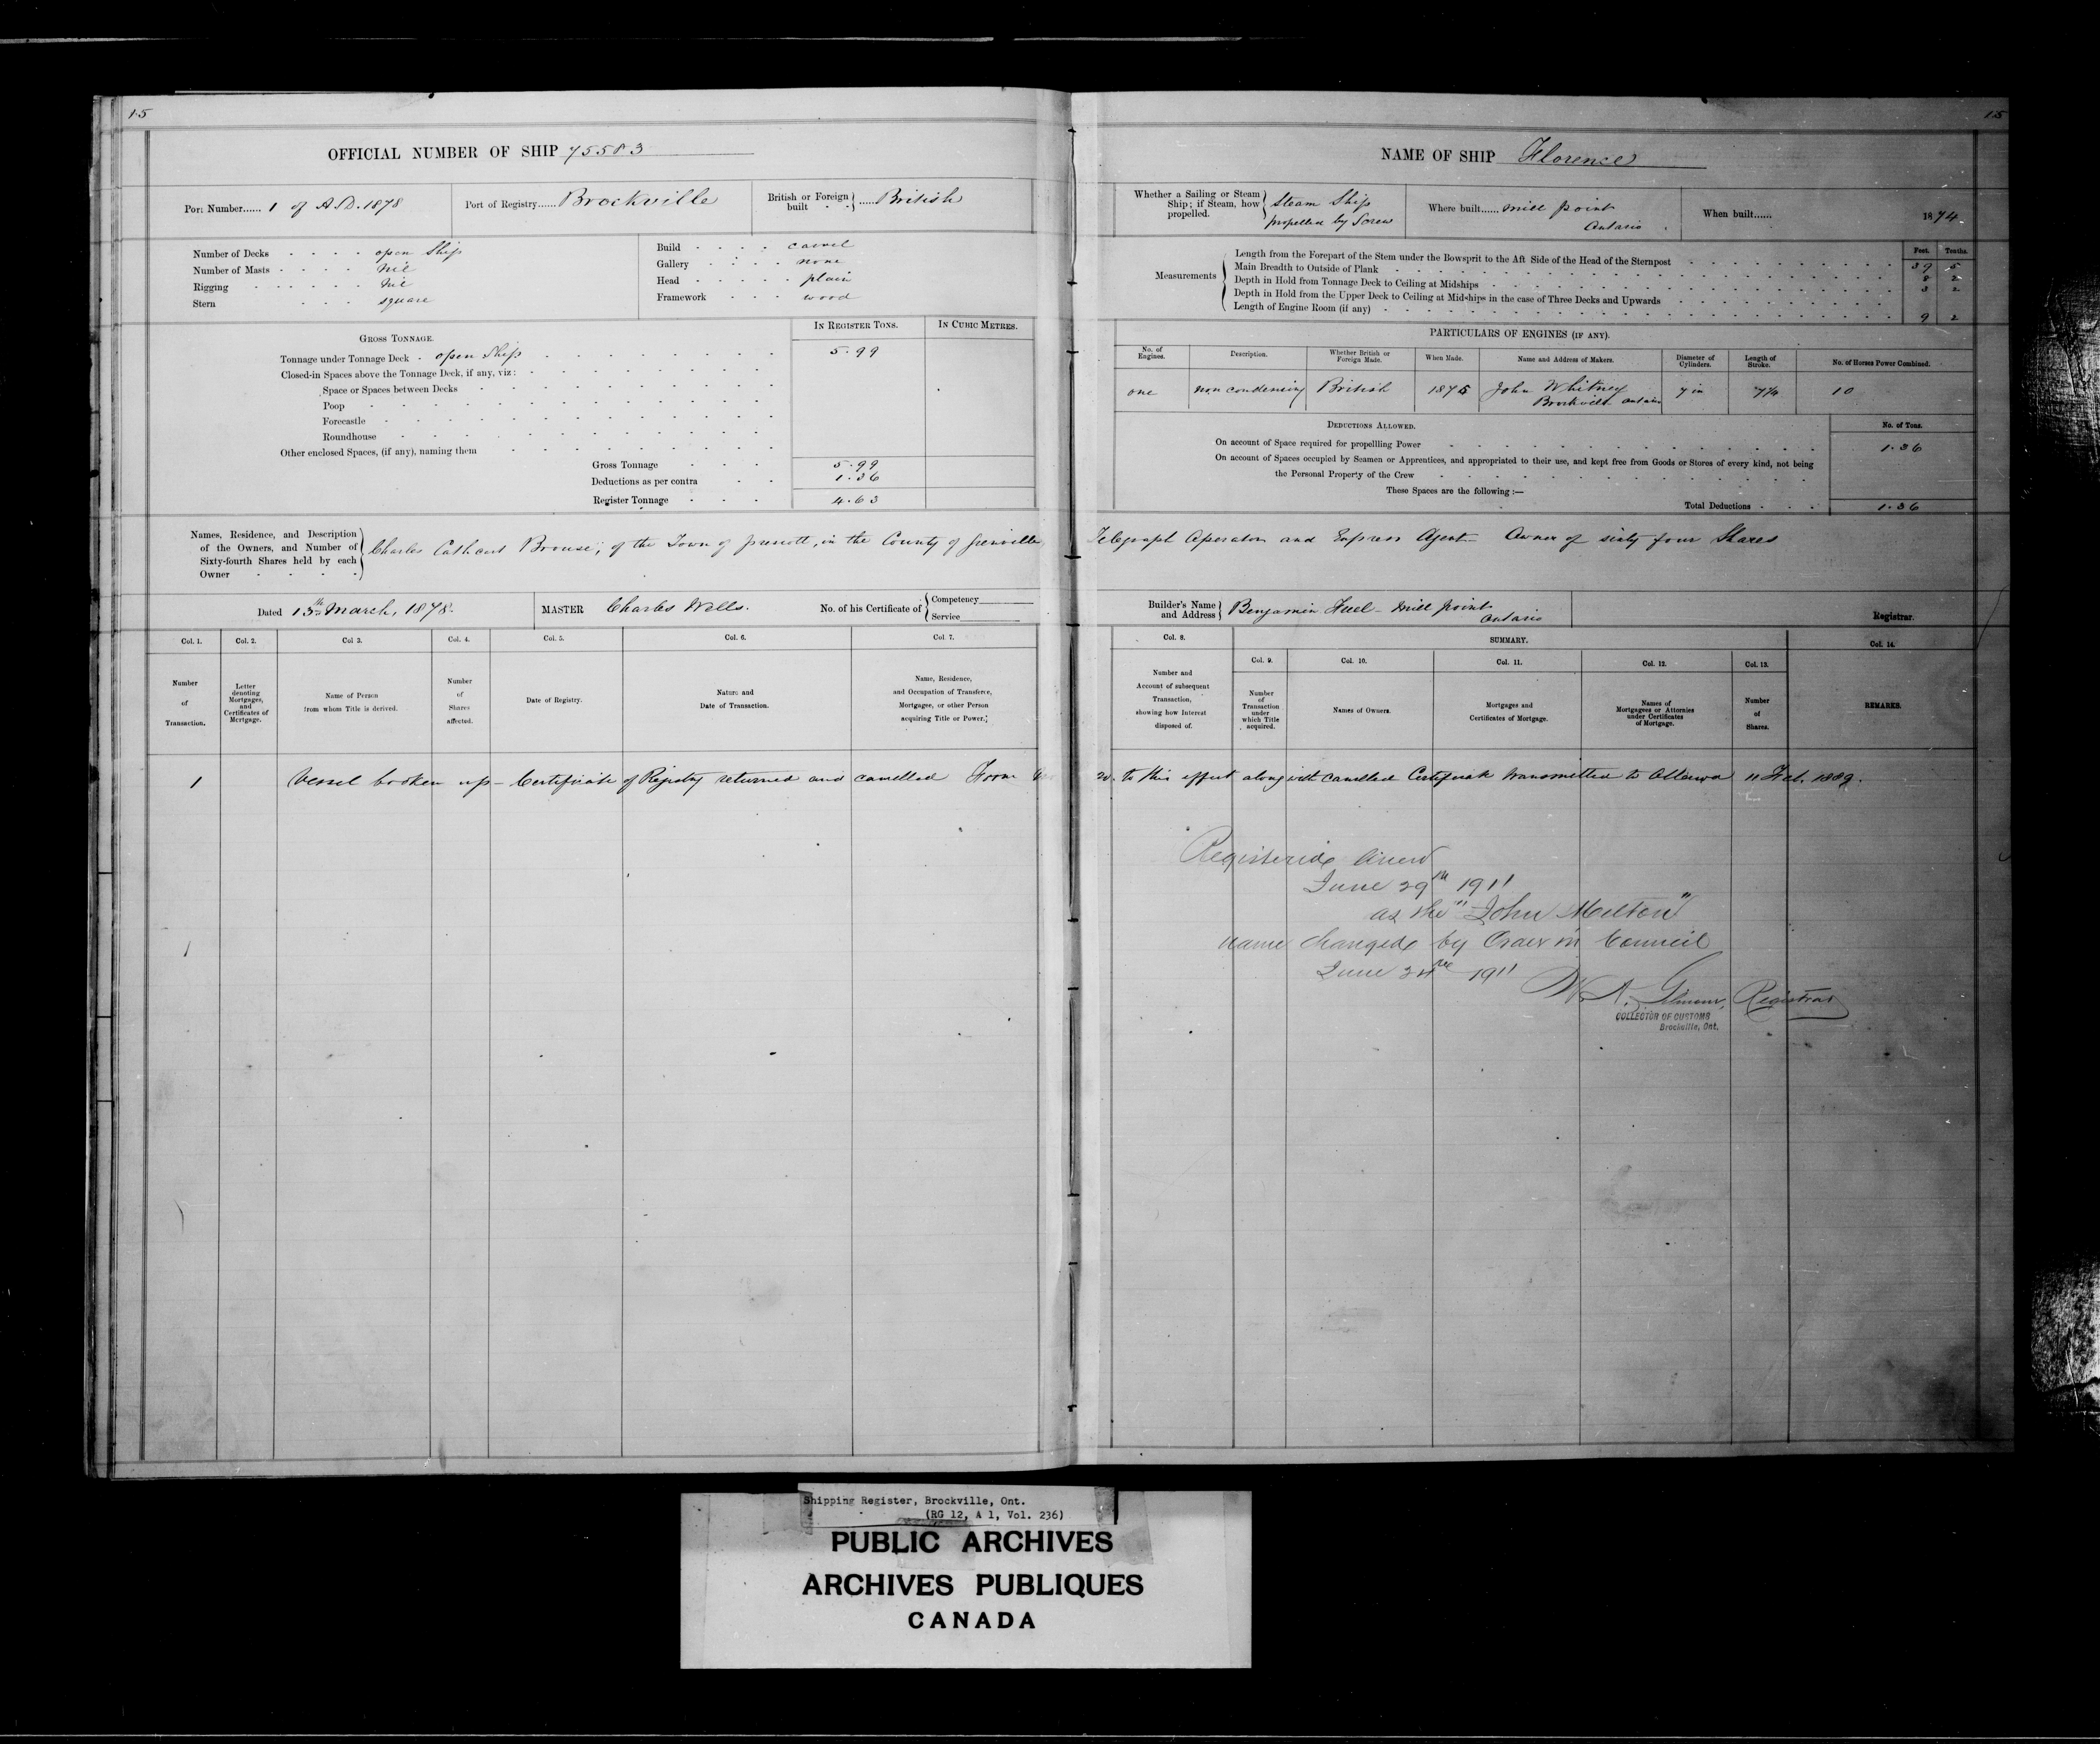 15
OFFICIAL NUMBER OF SHIP 75583
Port Number...... 1 of A.D. 1878
Port of Registry...... Brockville
British or Foreign built - - } ...... British
Number of Decks - - - - open Ship
Number of Masts - - - - Nil
Rigging - - - - - - Nil
Stern - - - square
Build - - - - carvel
Gallery - - - - none
Head - - - - - plain
Framework - - - wood
GROSS TONNAGE.
IN REGISTER TONS.
IN CUBIC METRES.
Tonnage under Tonnage Deck - open Ship 5.99
Closed-in Spaces above the Tonnage Deck, if any, viz:
Space or Spaces between Decks
Poop
Forecastle
Roundhouse
Other enclosed Spaces, (if any), naming them
Gross Tonnage 5.99
Deductions as per contra 1.36
Register Tonnage 4.63
Names, Residence, and Description of the Owners, and Number of Sixty-fourth Shares held by each Owner } Charles Cathcart Brouse, of the Town of prescott, in the County of Grenville
Dated 13th March, 1878.
MASTER Charles Wells.
No. of his Certificate of { Competency
Service
Col. 1. Number of Transaction.
Col. 2. Letter denoting Mortgages, and Certificates of Mortgage.
Col 3. Name of Person from whom Title is derived.
Col. 4. Number of Shares affected.
Col. 5. Date of Registry.
Col. 6. Nature and Date of Transaction.
Col. 7. Name, Residence, and Occupation of Transferee, Mortgagee, or other Person acquiring Title or Power.
1 Vessel broken up - Certificate of Registry returned and cancelled Form
15
NAME OF SHIP Florence
Whether a Sailing or Steam Ship; if Steam, how propelled. } Steam Ship propelled by Screw
Where built...... Mill point Ontario
When built...... 1874
Measurements
Feet. Tenths.
Length from the Forepart of the Stem under the Bowsprit to the Aft Side of the Head of the Sternpost 39 5
Main Breadth to Outside of Plank 8 2
Depth in Hold from Tonnage Deck to Ceiling at Midships 3 2
Depth in Hold from the Upper Deck to Ceiling at Midships in the case of Three Decks and Upwards
Length of Engine Room (if any) 9 2
PARTICULARS OF ENGINES (IF ANY).
No. of Engines.
Description.
Whether British or Foreign Made.
When Made.
Name and Address of Makers.
Diameter of Cylinders.
Length of Stroke.
No. of Horses Power Combined.
one non condensing British 1875 John Whitney Brockville Ontario 7 in 7¼ 10
DEDUCTIONS ALLOWED.
No. of Tons.
On account of Space required for propellling Power 1.36
On account of Spaces occupied by Seamen or Apprentices, and appropriated to their use, and kept free from Goods or Stores of every kind, not being
the Personal Property of the Crew
These Spaces are the following :—
Total Deductions 1.36
Telegraph Operator and Express Agent - Owner of sixty four Shares
Builder's Name and Address } Benjamin - Mill point Ontario
Registrar.
Col. 8. Number and Account of subsequent Transaction, showing how Interest disposed of.
SUMMARY.
Col. 9. Number of Transaction under which Title acquired.
Col. 10. Names of Owners.
Col. 11. Mortgages and Certificates of Mortgage.
Col. 12. Names of Mortgagees or Attornies under Certificates of Mortgage.
Col. 13. Number of Shares.
Col. 14. REMARKS.
20. to this effect along with cancelled Certificate transmitted to Ottawa 11 Feb. 1889.
Registered anew
June 29th 1911
as the "John Milton"
name changed by Order in Council
June 24th 1911
Registrar
COLLECTOR OF CUSTOMS
Brockville, Ont.
Shipping Register, Brockville, Ont.
(RG 12, A 1, Vol. 236)
PUBLIC ARCHIVES
ARCHIVES PUBLIQUES
CANADA